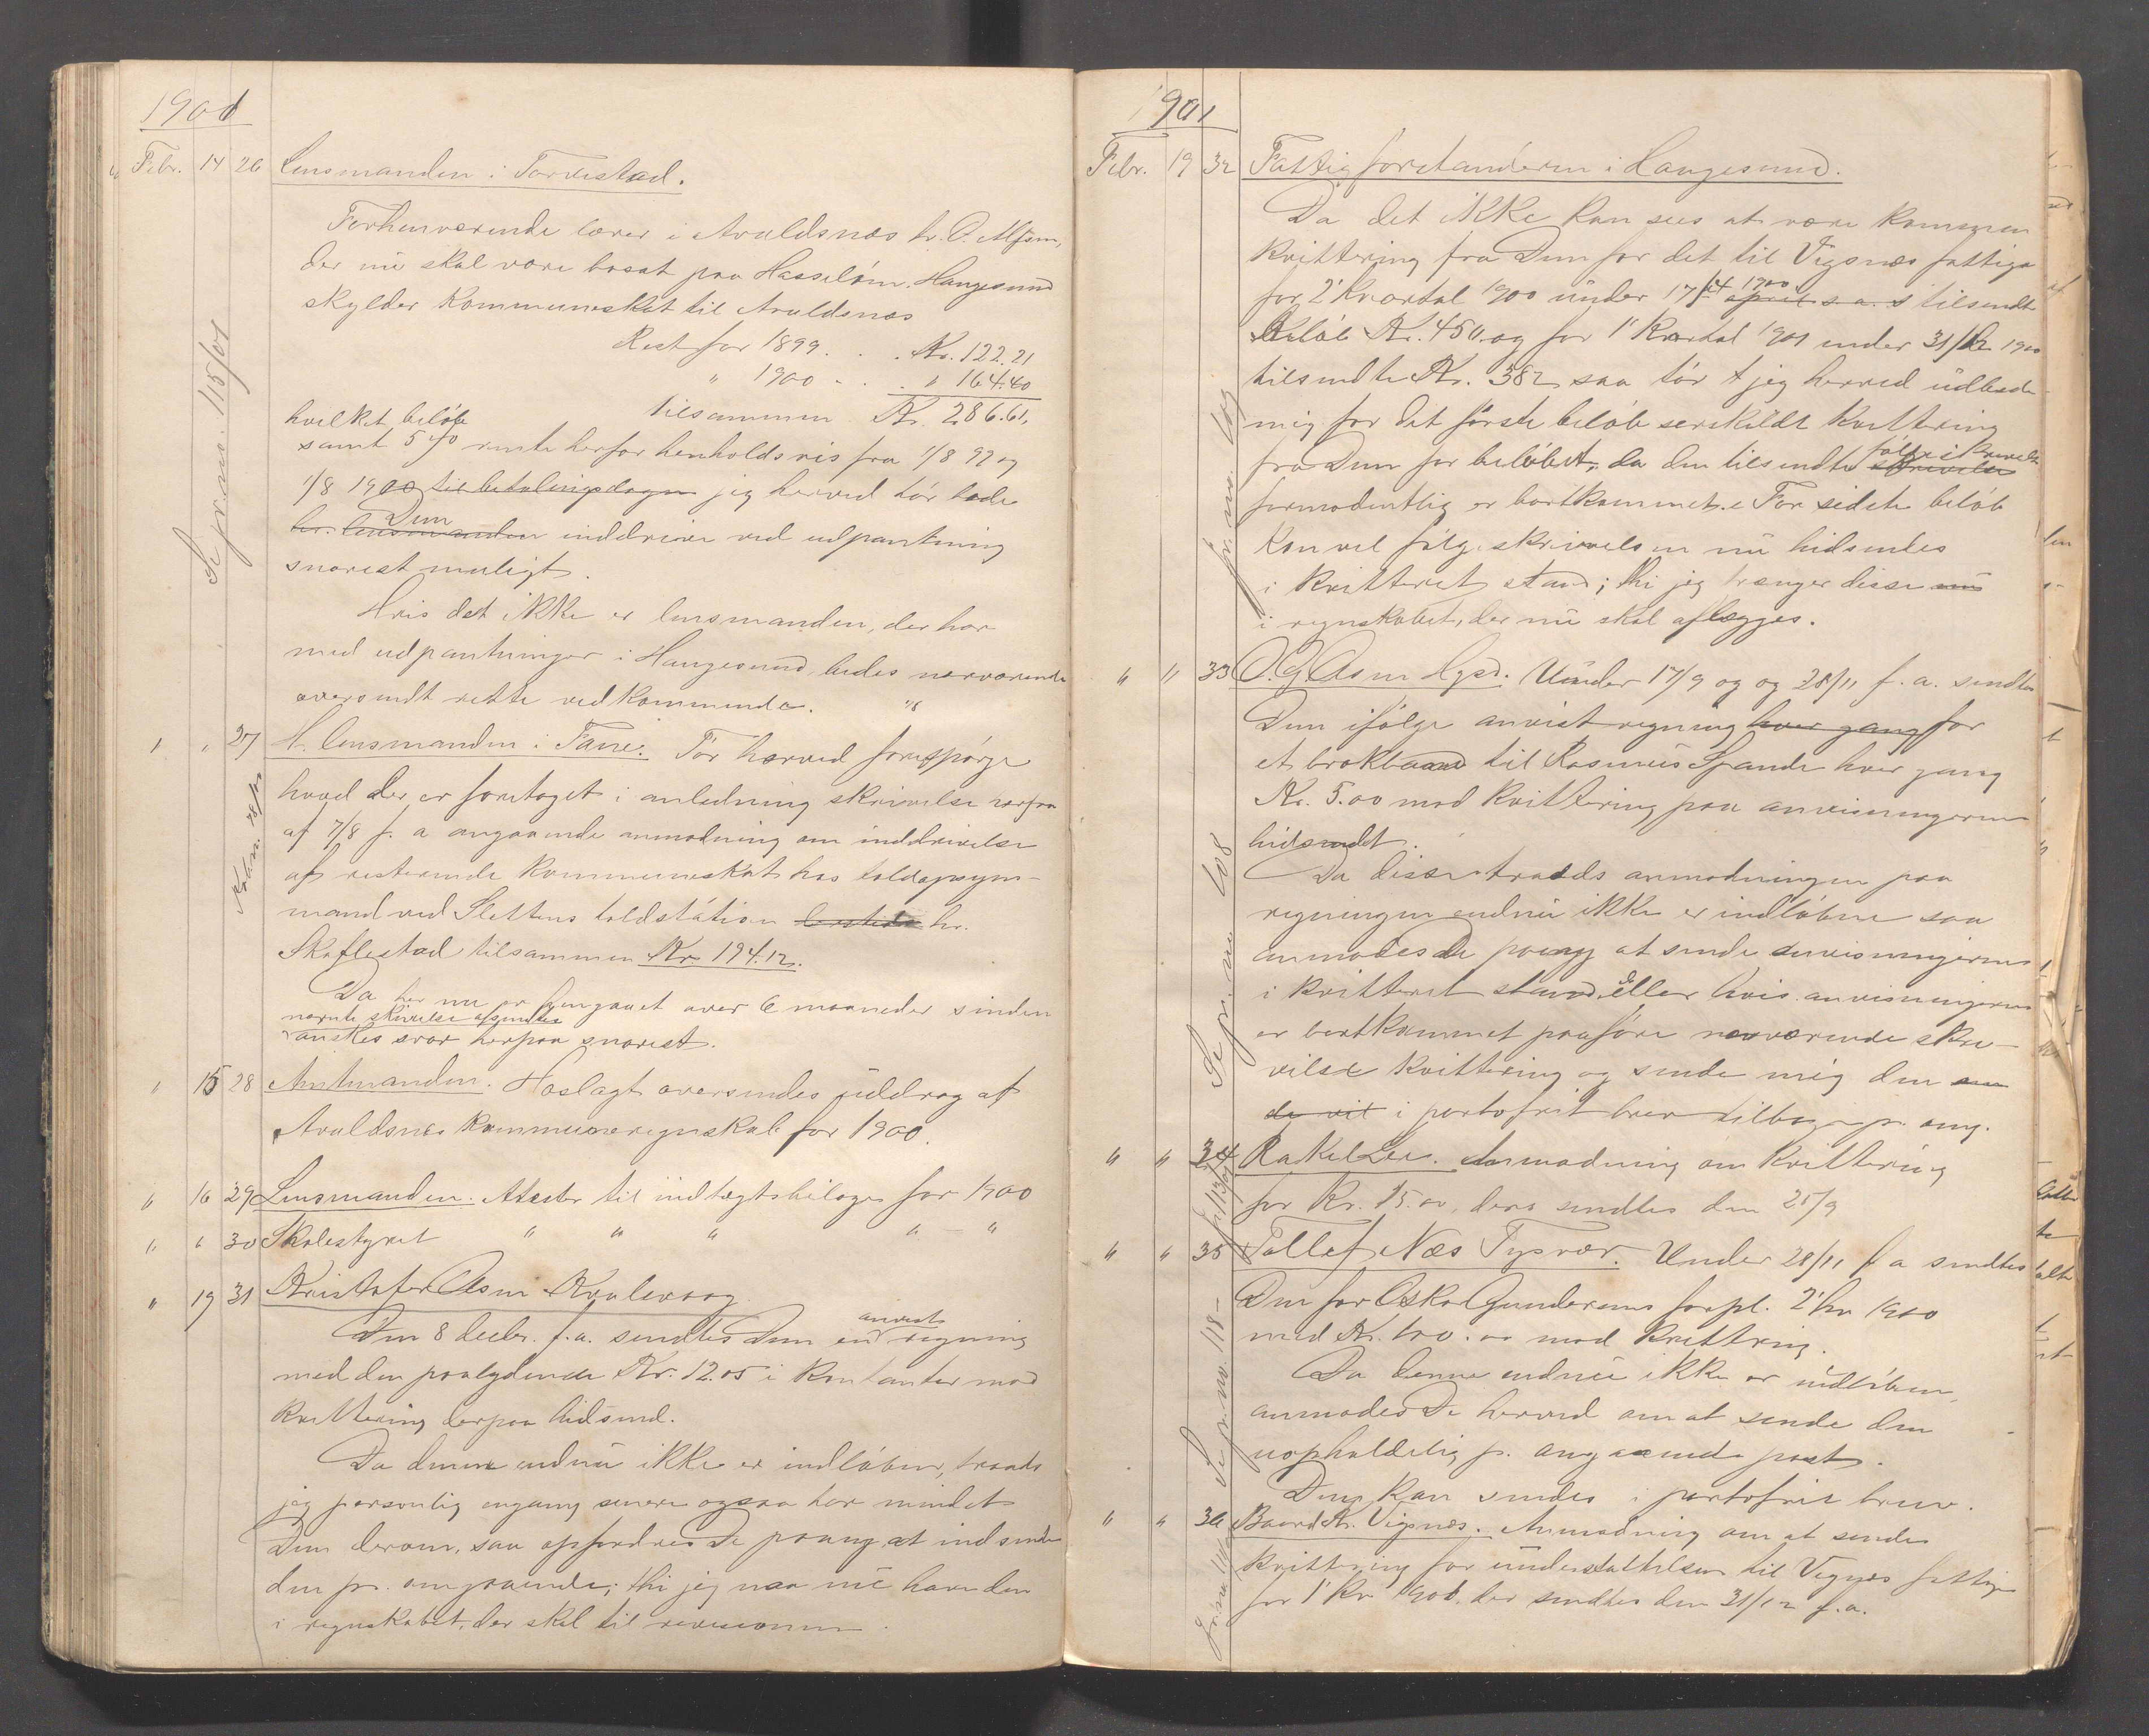 1901
Febr. 14 26 Lensmanden i Torvestad.
Forhenværende lærer i Avaldsnes hr. O.
der nu skal være bosat paa Hasseløen, Haugesund
skylder kommuneskat til Avaldsnes
Rest for 1899 . . . Kr. 122.21
" 1900 . . . " 164.40
tilsammen Kr. 286.61,
hvilket beløb
samt 5 % rente herfor henholdsvis fra 1/8 99 og
1/8 1900 til betalingsdagen jeg herved tør lade
hr. lensmanden Dem inddrive ved udpantning
snarest muligt.
Hvis det ikke er lensmanden, der har
med udpantninger i Haugesund, bedes nærværende
oversendt rette vedkommende. "
Se jr. no. 115/01
" " 27 H. lensmanden i Tane. Tør herved forespørge
hvad der er foretaget i anledning skrivelse herfra
af 7/8 f. a angaaende anmodning om inddrivelse
af resterende kommuneskat hos toldopsyn-
mand ved Slettens toldstation hr.
Skeflestad tilsammen Kr. 194.12.
Da her nu er hengaaet over 6 maaneder siden
nævnte skrivelse afsendtes
ønskes svar herpaa snarest.
" 15 28 Amtmanden. Hoslagt oversendes uddrag af
Avaldsnes kommuneregnskab for 1900.
" 16 29 Lensmanden. Attester til indtægtsbilager for 1900
" " 30 Skolestyret " " " " "
" 19 31 Kristofer Asm Kvalevaag
Den 8 decbr. f.a. sendtes Dem en anvist regning
med den paalydende Kr. 12.05 i kontanter mod
kvittering derpaa hidsend.
Da denne endnu ikke er indløben, traads
jeg personlig engang senere ogsaa har mindet
Dem derom, saa opfordres De paany at indsende
den pr. omgaaende; thi jeg maa nu have den
i regnskabet, der skal til revisionen.
1901
Febr. 19 32 Fattigforstanderen i Haugesund.
Da det ikke kan sees at være kommen
kvittering fra Dem for det til Vigsnes fattige
for 2' kvartal 1900 under 17/4 1900 april s. a. s tilsendte
Beløb Kr. 450. og for 1' Kvartal 1901 under 31/12 1900
tilsendte Kr. 382 saa tør jeg herved udbede
mig for det første beløb serskildt kvittering
fra Dem for beløbet, da den tilsendte følgeskrivelse skrivelse
formodentlig er bortkommet. For sidste beløb
kan vel følgeskrivelsen nu hidsendes
i kvitteret stand; thi jeg trænger disse nu
i regnskabet, der nu skal aflægges.
jr. no. 109
" " 33 O. G. Asm Ugsd. Under 17/9 og og 28/11 f. a. sendtes
Dem ifølge anvist regning hver gang for
et brokbaand til Rasmus Spande hver gang
Kr. 5.00 mod kvittering paa anvisningerne
hidsendt.
Da disse tradds anmodningen paa
regningen endnu ikke er indløbne saa
anmodes De paany at sende anvisningerne
i kvitteret stand, eller hvis anvisningerne
er bortkommet paaføre nærværende skri-
velse kvittering og sende mig den
de vil i portofrit brev tilbage p. omg.
Se jr. no 108
" " 34 Rakel Lee. Anmodning om kvittering
for Kr. 15.00, ders sendtes den 25/9
" " 35 Tollef Næs Tysvær. Under 28/11 f a sendtes
Dem for Oskar Gundersens forpl. 2' hr 1900
med Kr. 100.00 mod kvittring.
Da denne endnu ikke er indløben,
anmodes De herved om at sende den
uopholdelig p. omgaaende post.
Den kan sendes i portofrit brev.
Se jr. no. 118
" " 36 Baard Kr. Vigsnes. Anmodning om at sende
kvittering for understøttelsen til Vignes fattige
for 1' Kv 1901, der sendtes den 31/12 f.a.